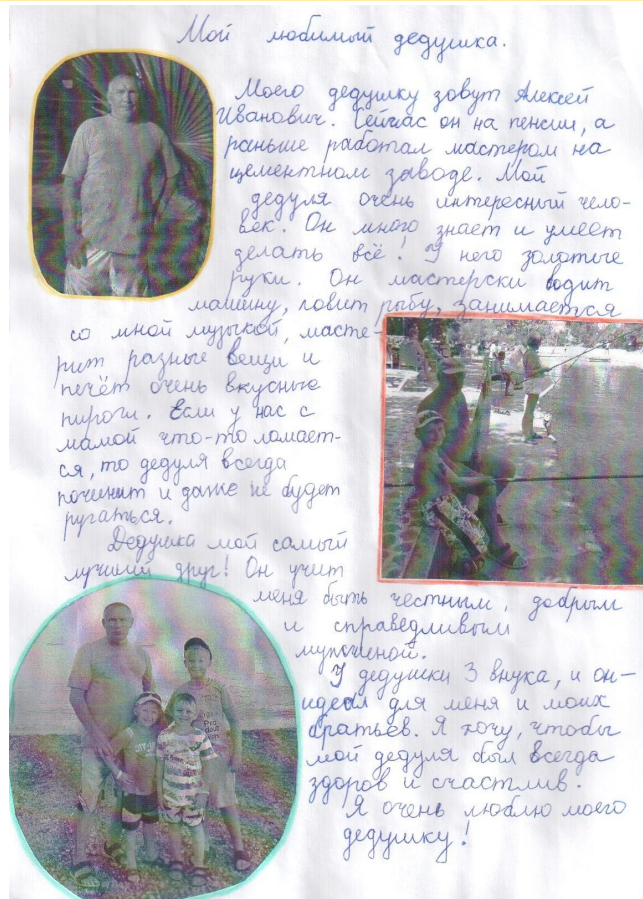 Мой любимый дедушка.
Моего дедушку зовут Алексей
Иванович. Сейчас он на пенсии, а
раньше работал мастером на
цементном заводе. Мой
дедуля очень интересный чело-
век. Он много знает и умеет
делать всё! У него золотые
руки. Он мастерски водит
машину, ловит рыбу, занимается
со мной музыкой, масте-
рит разные вещи и
печёт очень вкусные
пироги. Если у нас с
мамой что-то ломает-
ся, то дедуля всегда
починит и даже не будет
ругаться.
Дедушка мой самый
лучший друг! Он учит
меня быть честным, добрым
и справедливым
мужчиной.
У дедушки 3 внука, и он-
идеал для меня и моих
братьев. Я хочу, чтобы
мой дедуля был всегда
здоров и счастлив.
Я очень люблю моего
дедушку!